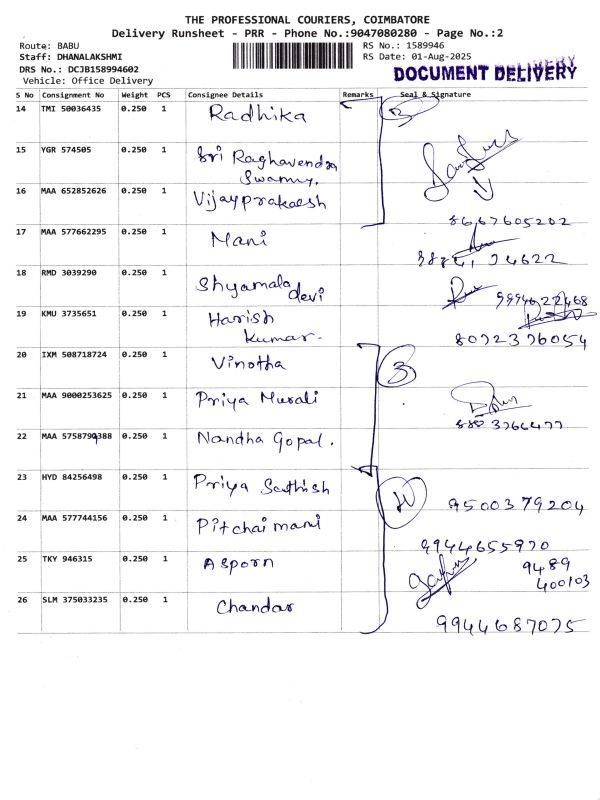 THE PROFESSIONAL COURIERS, COIMBATORE
Delivery Runsheet - PRR - Phone No.:9047080280 - Page No.:2
Route: BABU
Staff: DHANALAKSHMI
DRS No.: DCJB158994602
Vehicle: Office Delivery
RS No.: 1589946
RS Date: 01-Aug-2025
DOCUMENT DELIVERY
S No Consignment No Weight PCS Consignee Details Remarks Seal & Signature
14 TMI 50036435 0.250 1 Radhika
15 YGR 574505 0.250 1 Sri Raghavendra
Swamy.
16 MAA 652852626 0.250 1 Vijayprakash
8667605202
17 MAA 577662295 0.250 1 Mani
18 RMD 3039290 0.250 1 Shyamala
devi
9994622468
19 KMU 3735651 0.250 1 Harish
Kumar.
8072376054
20 IXM 508718724 0.250 1 Vinotha
3
21 MAA 9000253625 0.250 1 Priya Murali
22 MAA 5758799388 0.250 1 Nandha Gopal.
23 HYD 84256498 0.250 1 Priya Sathish
9500379204
24 MAA 577744156 0.250 1 Pitchaimani
9944655970
25 TKY 946315 0.250 1 Asporn
9489
400103
26 SLM 375033235 0.250 1 Chandar
9944687075